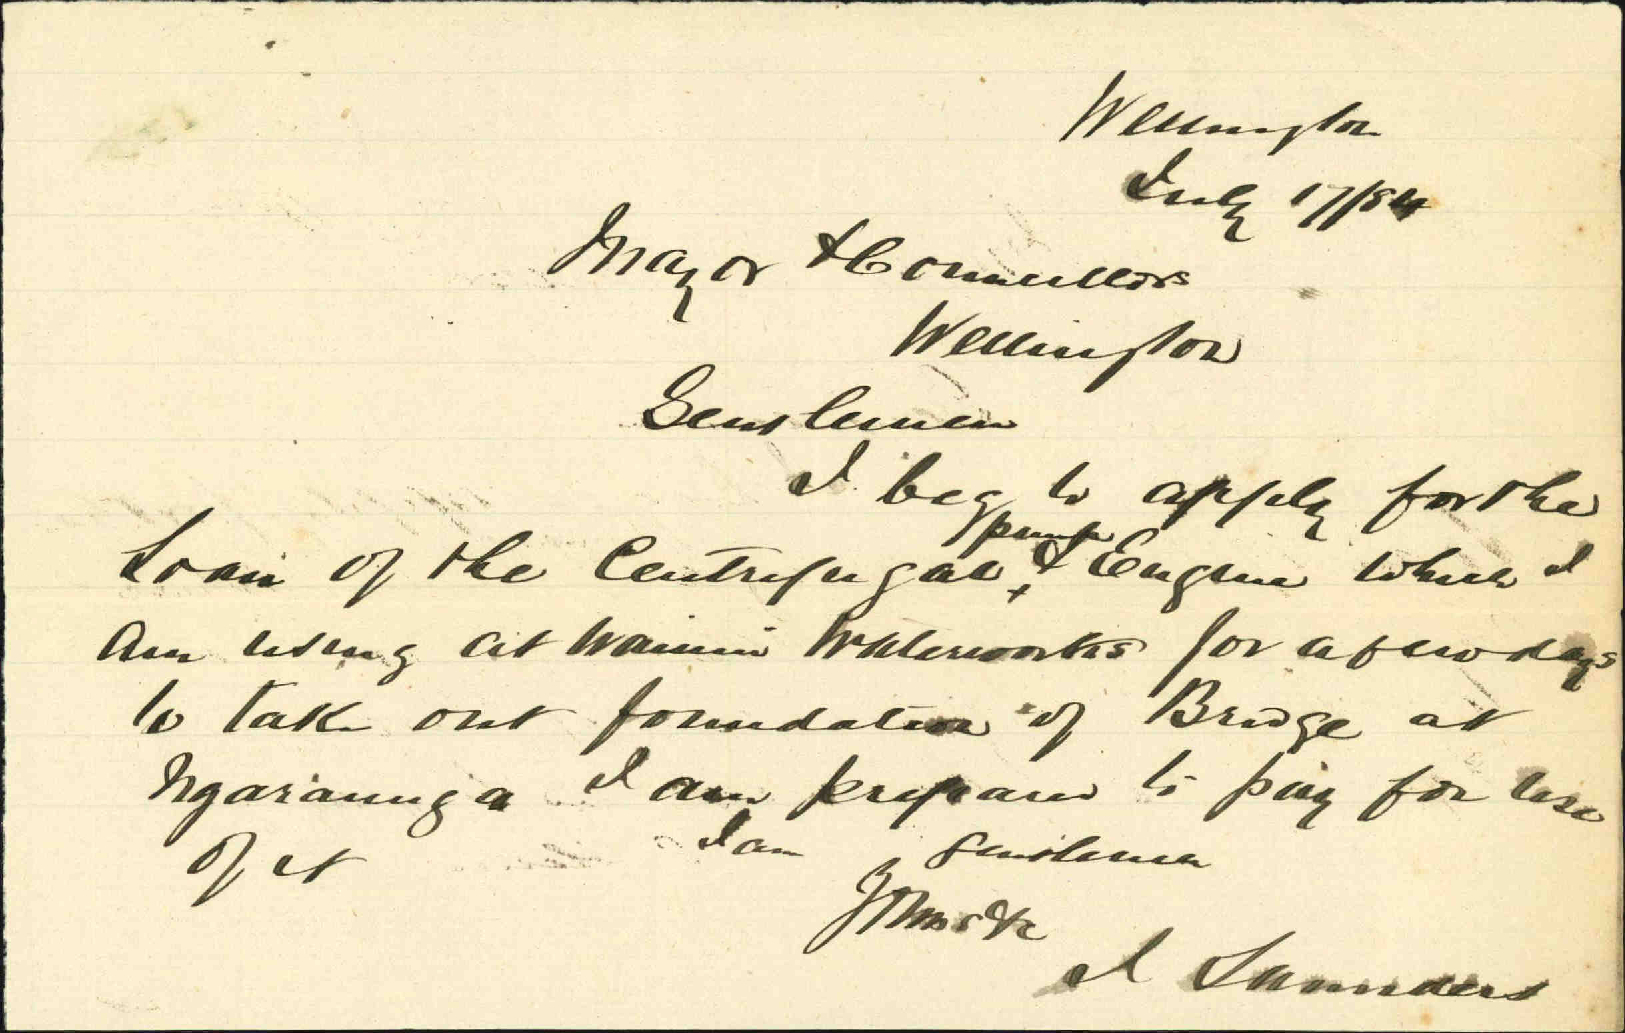 Wellington
July 17/84
Mayor & Councillors
Wellington
Gentlemen
I beg to apply for the
Loan of the Centrifugal pump & Engine which I
am using at Wainui Waterworks for a few days
to take out foundation of Bridge at
Ngaraunga I am prepared to pay for use
of it I am Gentlemen
Yours &c
J Saunders